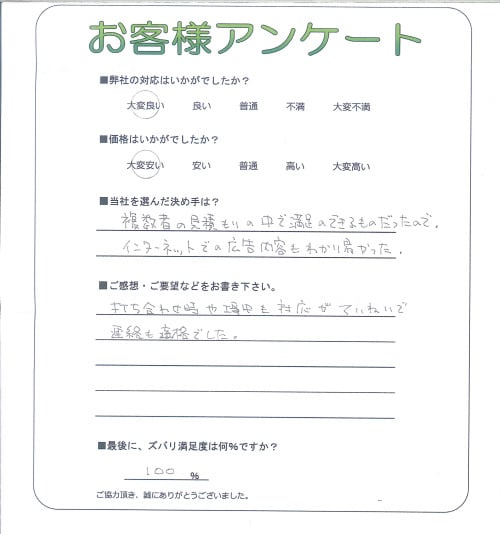 お客様アンケート
■弊社の対応はいかがでしたか？
大変良い 良い 普通 不満 大変不満
■価格はいかがでしたか？
大変安い 安い 普通 高い 大変高い
■当社を選んだ決め手は？
複数者の見積もりの中で満足のできるものだったので。
インターネットでの広告内容もわかり易かった。
■ご感想・ご要望などをお書き下さい。
打ち合わせ時や工事中も対応がていねいで
連絡も適格でした。
■最後に、ズバリ満足度は何%ですか？
100 %
ご協力頂き、誠にありがとうございました。